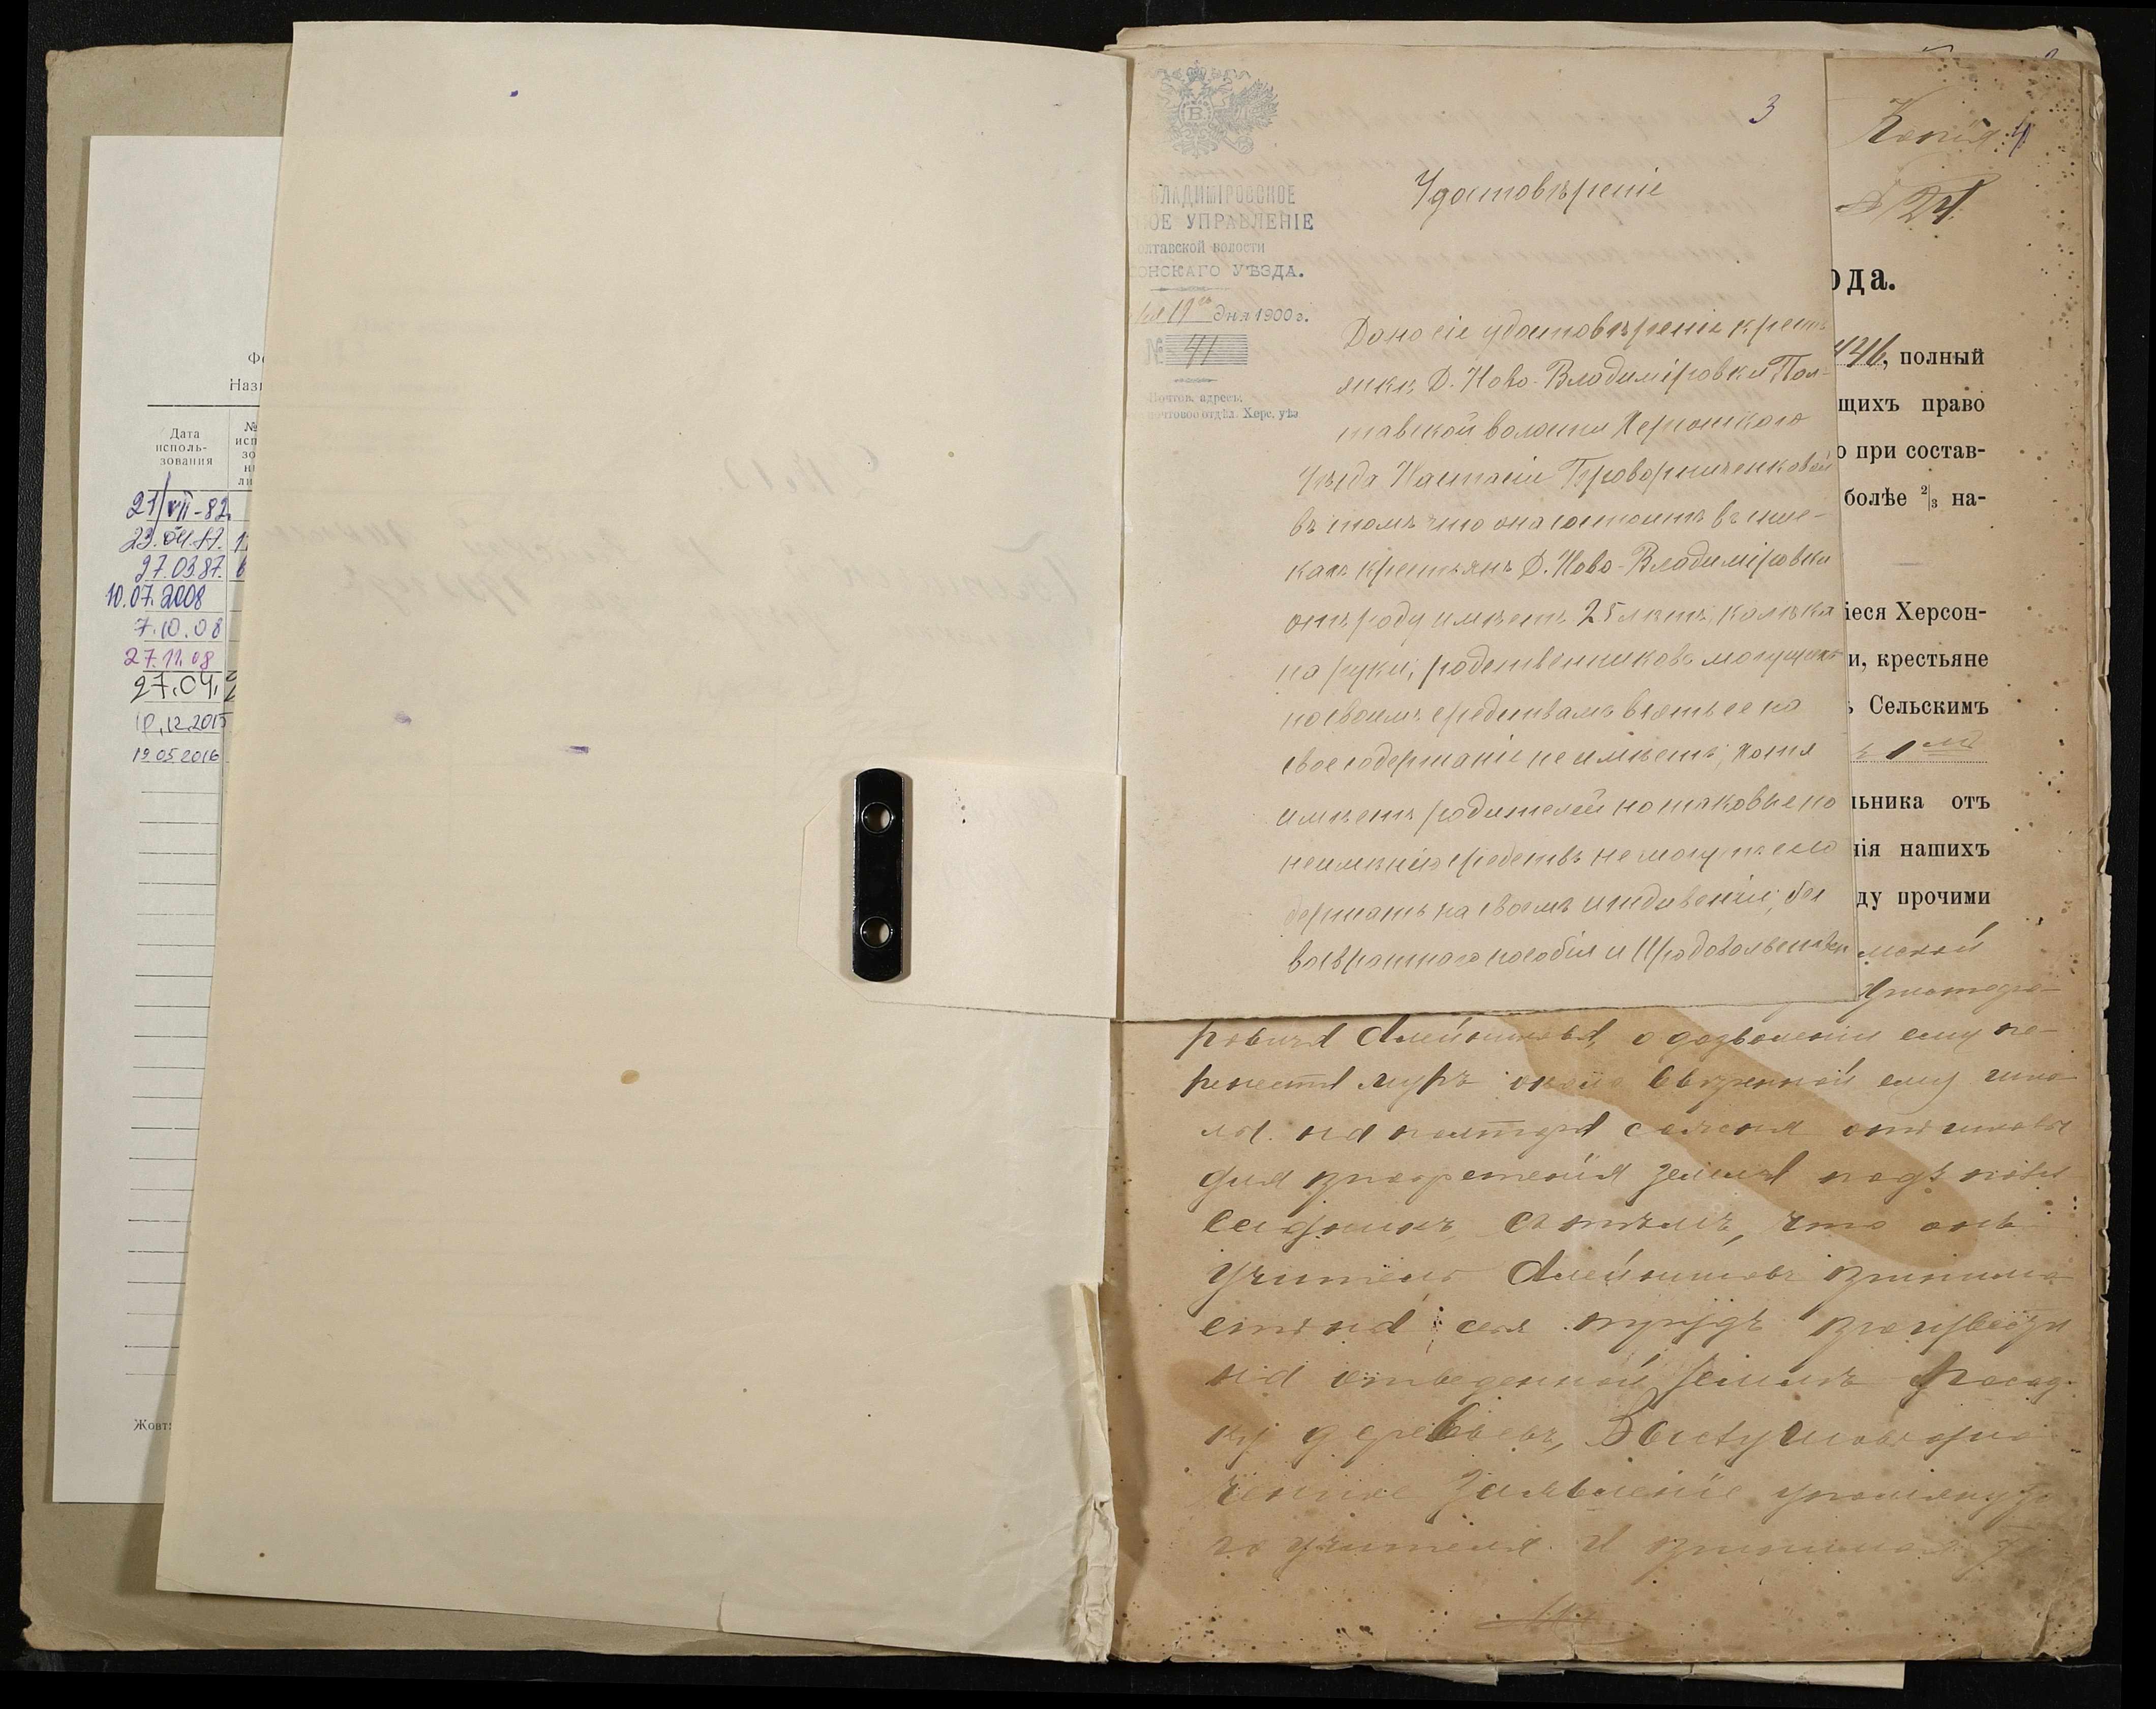 Ф
Назв
Дата
исполь-
зования
№
исп
зо
н
ли
21/VII-82
23.04.87.
27.03.87.
10.07.2008
7.10.08
27.11.08
27.04.
10.12.2015
19.05.2016
Жовт
3
ВЛАДИМІРОВСКОЕ
ОЕ УПРАВЛЕНІЕ
олтавской волости
ОНСКАГО УѢЗДА.
19го дня 1900 г.
№ 41
Почтов. адресъ.
почтовое отдѣл. Херс. уѣз
Удостовѣреніе
Дано сіе удостовѣреніе кресть
янкѣ Д. Ново-Владиміровки Пол-
тавской волости Херсонскаго
Уѣзда Настасіи
въ томъ что она состоитъ въ спис-
кахъ крестьянъ Д. Ново-Владиміровки
отъ роду имѣетъ 25 лѣтъ, калѣка
на руки, родственниковъ могущихъ
по своимъ средствамъ взять ее на
свое содержаніе не имѣетъ, хотя
имѣетъ родителей но таковые по
неимѣнію средствъ не могутъ ее со
держать на своемъ иждивеніи, без
возвратнаго пособія и Продовольствен
Копія 4
№ 24
ода.
446, полный
щихъ право
о при состав-
болѣе 2/3 на-
іеся Херсон-
и, крестьяне
ъ Сельскимъ
1
льника отъ
нія нашихъ
ду прочими
ровича Олейникова, о дозволеніи ему пе-
ренести муръ около ввѣренной ему шко-
лы на полтора сажня отъ школы
для пріобретенія земли подъ
садникъ съ тѣмъ, что онъ
Учитель Олейниковъ принима
етъ на себя трудъ произвести
на отведенной землѣ посад
ку деревьевъ, Выслушавъ
ченное Заявленіе упомянуто
го учителя и принимая